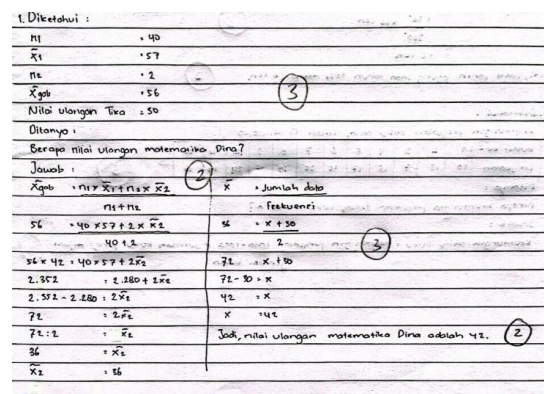 1. Diketahui :
n1 = 40
x̄1 = 57
n2 = 2
x̄gab = 56
3
Nilai ulangan Tika = 30
Ditanya :
Berapa nilai ulangan matematika Dina?
Jawab :
2
x̄gab = n1 x x̄1 + n2 x x̄2
n1 + n2
56 = 40 x 57 + 2 x x̄2
40 + 2
56 x 42 = 40 x 57 + 2x̄2
2.352 = 2.280 + 2x̄2
2.352 - 2.280 = 2x̄2
72 = 2x̄2
72 : 2 = x̄2
36 = x̄2
x̄2 = 36
x̄ = Jumlah data
frekuensi
36 = x + 30
2
3
72 = x + 30
72 - 30 = x
42 = x
x = 42
Jadi, nilai ulangan matematika Dina adalah 42.
2